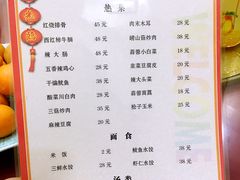 热菜
红烧排骨 45元
西红柿牛腩 48元
辣大肠 48元
五香辣鸡心 28元
干煸鱿鱼 38元
酸菜川白肉 28元
三菇炒肉 38元
麻辣豆腐 20元
肉末木耳 28元
崂山菇炒肉 38元
蒜蓉小白菜 18元
韭菜豆腐皮 20元
辣大头菜 20元
蒜蓉茼蒿 18元
松子玉米 25元
面食
米饭 2元
三鲜水饺 28元
鱿鱼水饺 38元
虾仁水饺 38元
汤类
WELCOME